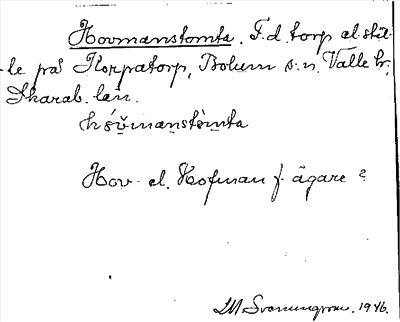 Hovmanstomta. F.d. torp el. stäl-
le på Korpatorp, Bolum s:n. Valle hr;
Skarab. län.
hóv̆manstòmta
Hov- el. Hofman f. ägare?
1946.